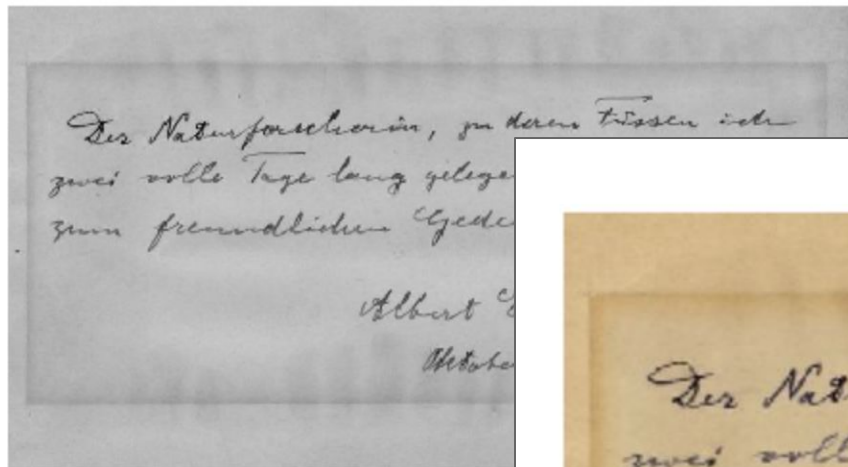 Der Naturforscherin, zu deren Füssen ich
zwei volle Tage lang gelege
zum freundlichen Gede
Albert
Oktobe
Der Nat
zwei voll